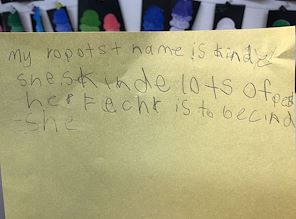 my ropotst name is kinde
she skinde lots of peds
her Fecht is to be cind
-she